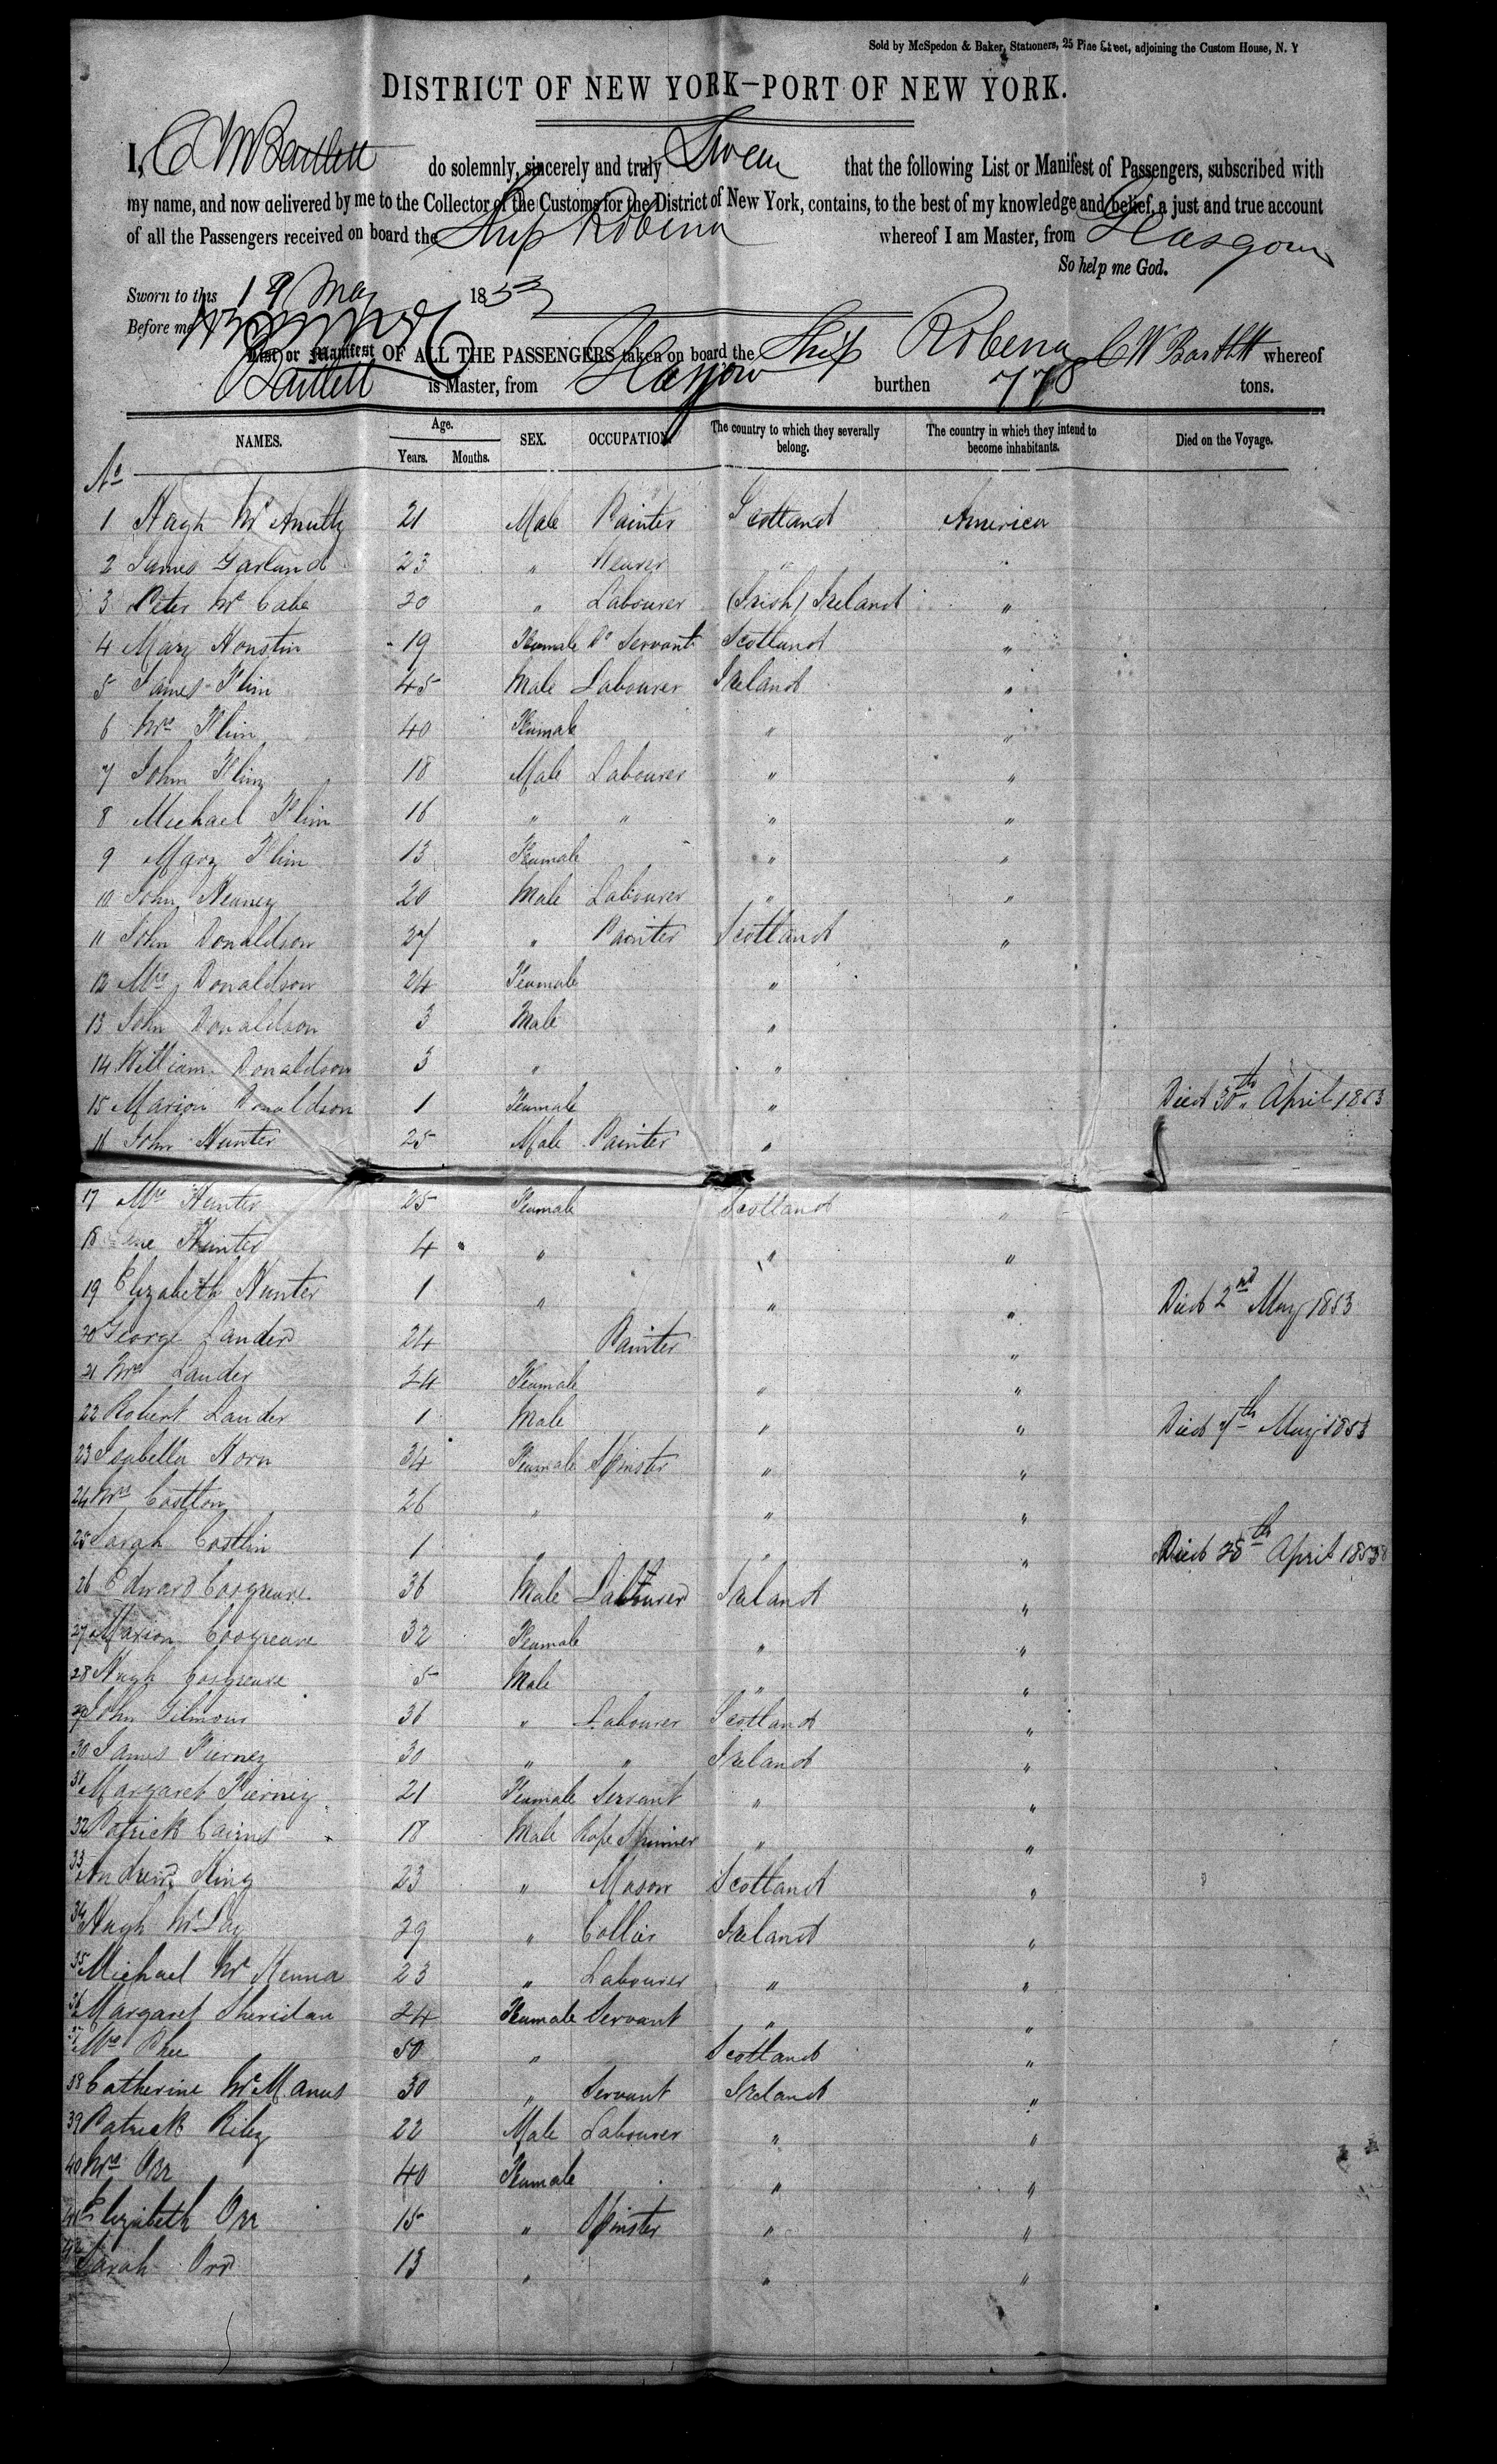 Sold by McSpedon & Baker, Stationers, 25 Pine Street, adjoining the Custom House, N. Y
DISTRICT OF NEW YORK—PORT OF NEW YORK.
I, C W Bartlett do solemnly, sincerely and truly Swear that the following List or Manifest of Passengers, subscribed with
my name, and now delivered by me to the Collector of the Customs for the District of New York, contains, to the best of my knowledge and belief, a just and true account
of all the Passengers received on board the Ship Robena whereof I am Master, from Glasgow
So help me God.
Sworn to this 19 May 1853
Before me
List or Manifest OF ALL THE PASSENGERS taken on board the Ship Robena C W Bartlett whereof
Bartlett is Master, from Glasgow burthen 778 tons.
No NAMES. Age. Years. Months. SEX. OCCUPATION. The country to which they severally belong. The country in which they intend to become inhabitants. Died on the Voyage.
1 Hugh Mc Anulty 21 Male Painter Scotland America
2 James Garland 23 " " "
3 Peter Mc Cabe 20 " Labourer (Irish) Ireland "
4 Mary Houstin 19 Feumale Do Servant Scotland "
5 James Flin 45 Male Labourer Ireland "
6 Mrs Flin 40 Feumale " "
7 John Flin 18 Male Labourer " "
8 Michael Flin 16 " " " "
9 Mary Flin 13 Feumale " "
10 John Heaney 20 Male Labourer " "
11 John Donaldson 37 " Painter Scotland "
12 Mrs Donaldson 24 Feumale "
13 John Donaldson 3 Male "
14 William Donaldson 3 " "
15 Marion Donaldson 1 Feumale " Died 30th April 1853
16 John Hunter 25 Male Painter "
17 Mrs Hunter 25 Feumale Scotland "
18 Hunter 4 " " "
19 Elizabeth Hunter 1 " " " Died 2nd May 1853
20 George Lander 24 Painter "
21 Mrs Lander 24 Feumale " "
22 Robert Lander 1 Male " " Died 7th May 1853
23 Isabella Horn 34 Feumale Spinster " "
24 Mrs Costlon 26 " " "
25 Sarah Costlin 1 " " " Died 28th April 1853
26 Edward Cosgreave 36 Male Labourer Ireland "
27 Marion Cosgreave 32 Feumale " "
28 Hugh Cosgreave 5 Male " "
29 John Gilmour 36 " Labourer Scotland "
30 James Tierney 30 " " Ireland "
31 Margaret Tierney 21 Feumale Servant " "
32 Patrick Cairns 18 Male Rope Spinner " "
33 Andrew King 23 " Mason Scotland "
34 Hugh Mc Lay 29 " Collier Ireland "
35 Michael Mc Kenna 23 " Labourer " "
36 Margaret Sheridan 24 Feumale Servant " "
37 Mrs Phee 50 " Scotland "
38 Catherine Mc Manus 30 " Servant Ireland "
39 Patrick Riley 22 Male Labourer " "
40 Mrs Orr 40 Feumale " "
41 Elizabeth Orr 15 " Spinster " "
42 Sarah Orr 13 " " "